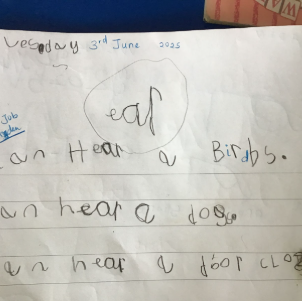 Tuesday 3rd June 2025
ear
an Hear a Birdbs.
an hear a dog.
an hear a door clo